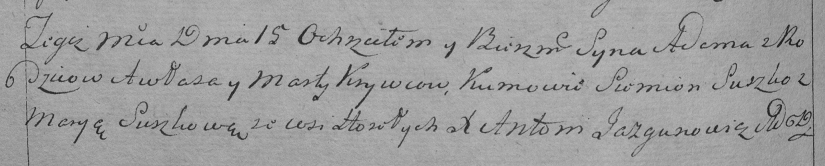 Tegoż Mca Dnia 15 Ochrzciłem y Bierzm Syna Adama z Ro
6 dziców Awłasa y Marty Krywców, Kumowie Siemion Suszko z
Maryą Suszkową ze wsi Horodych X Antoni Jazgunowicz